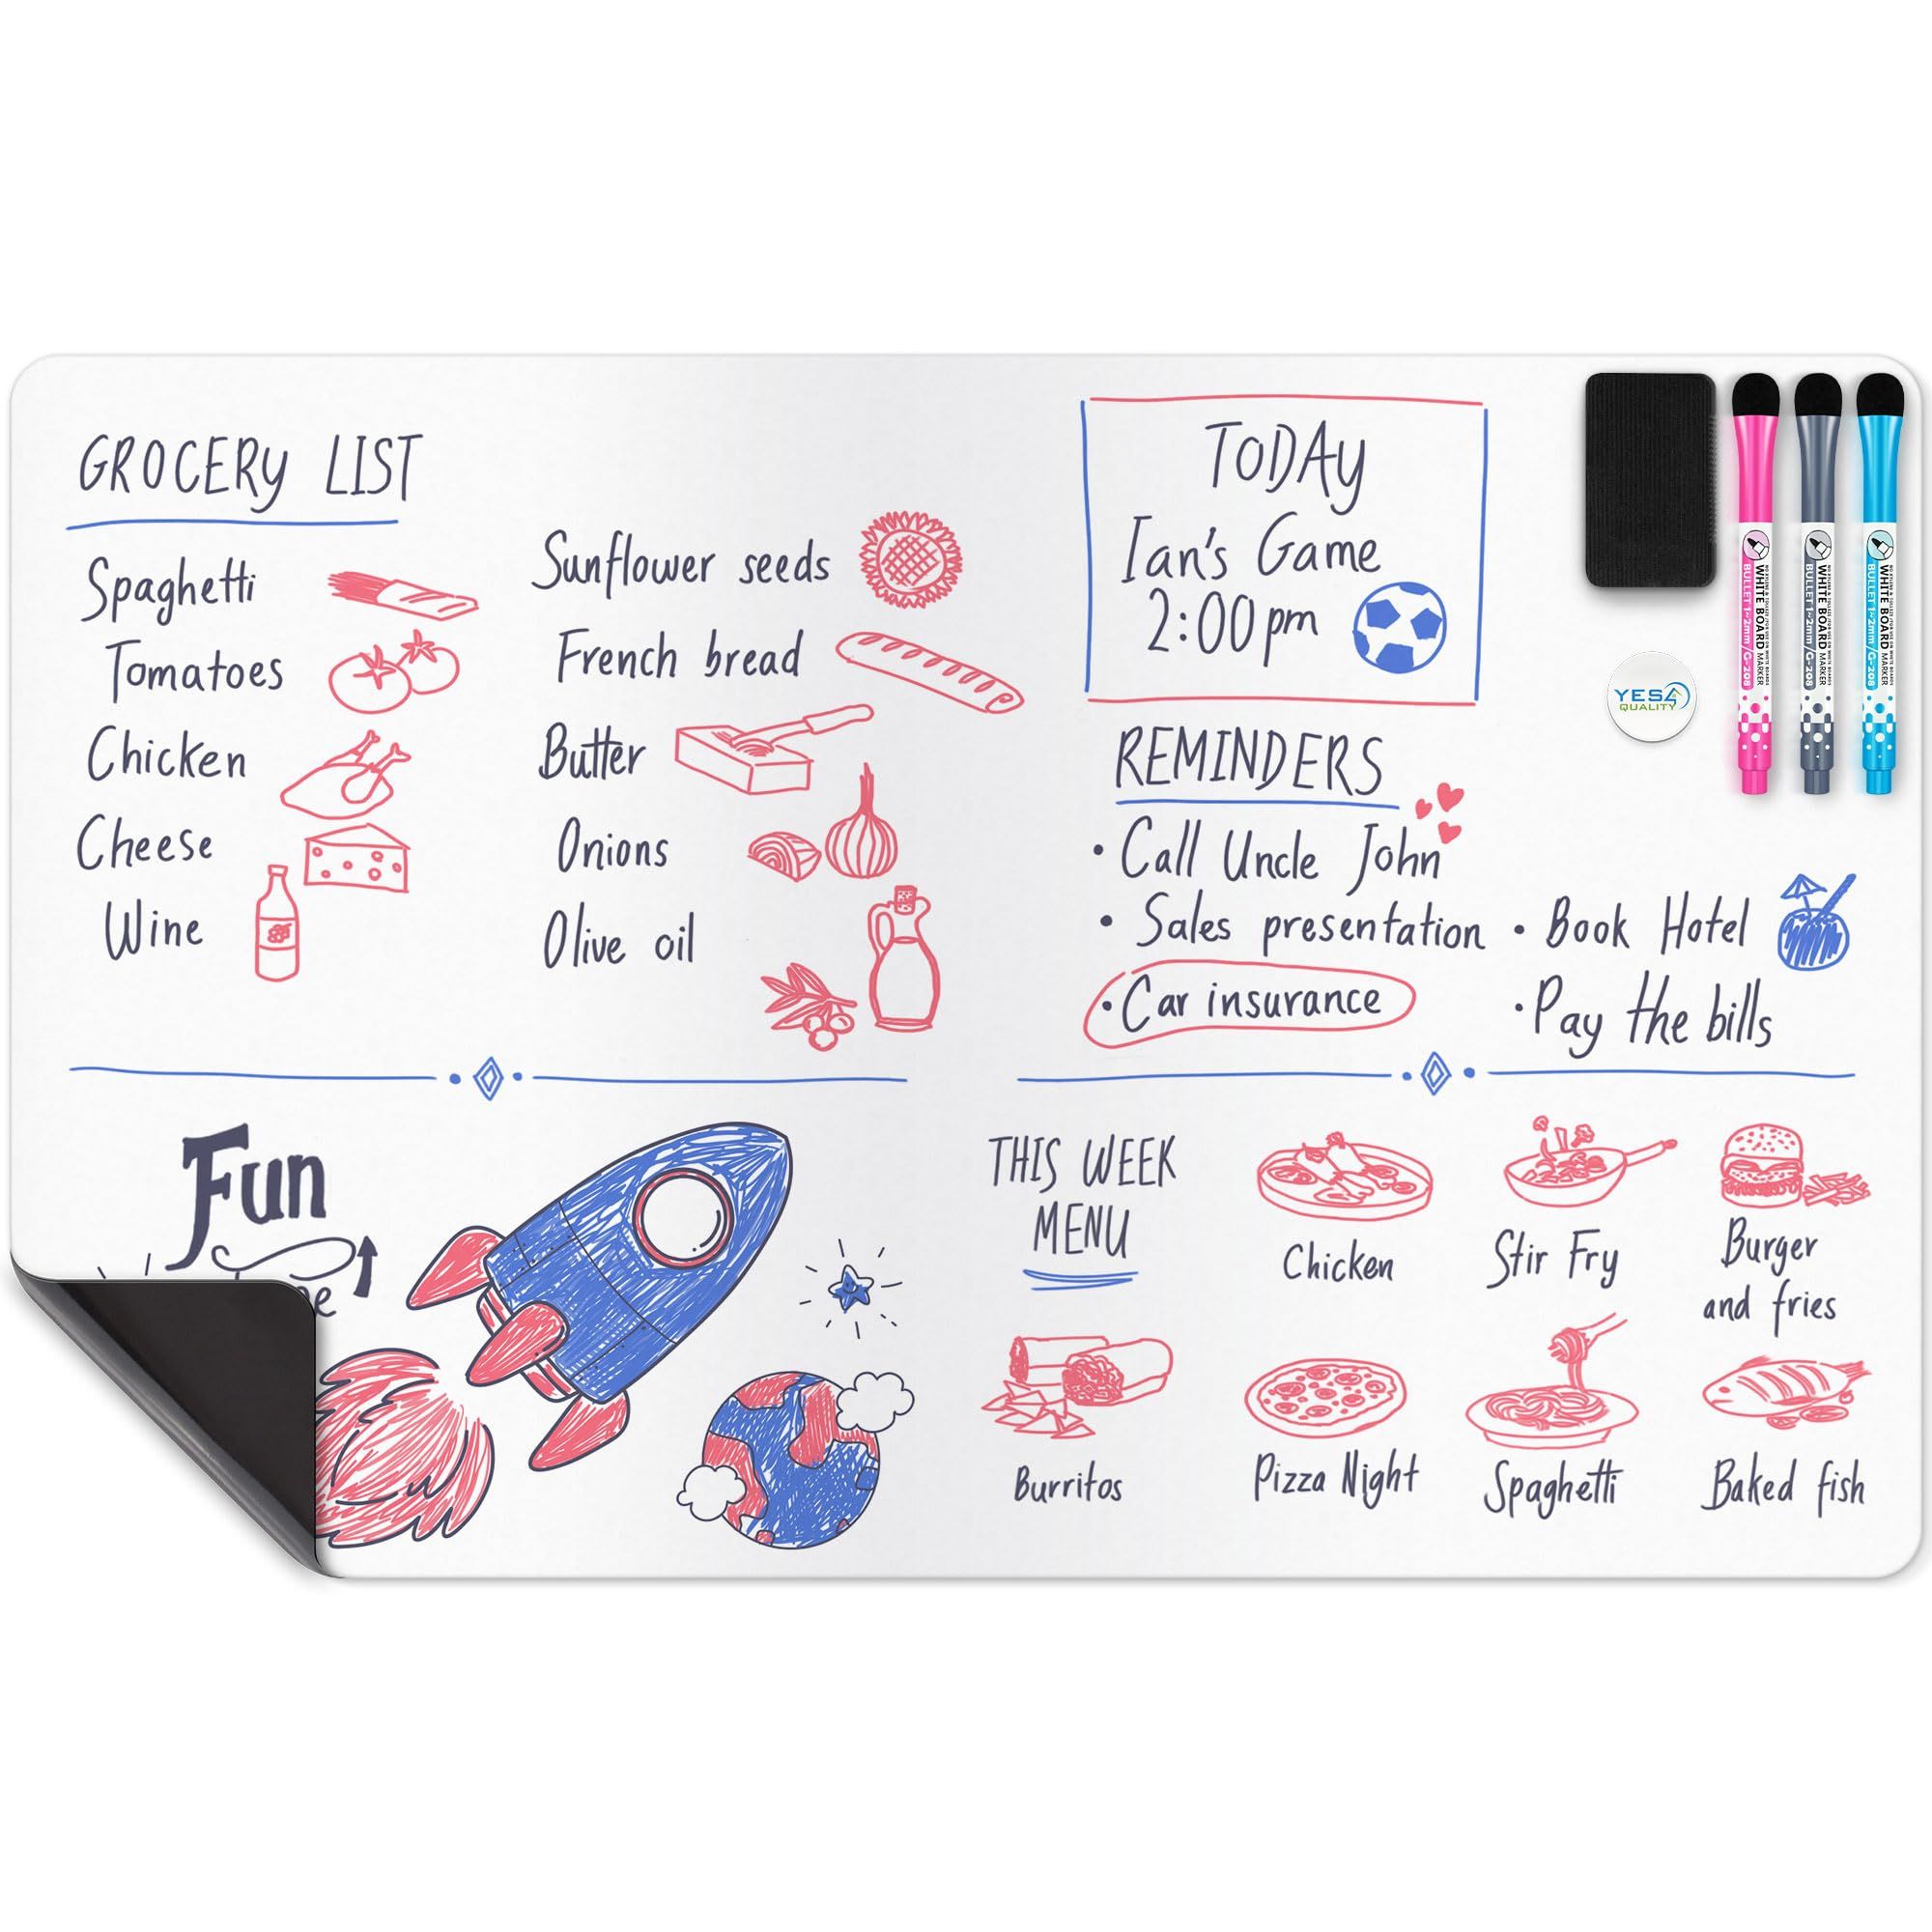 GROCERY LIST
Spaghetti
Tomatoes
Chicken
Cheese
Wine
Sunflower seeds
French bread
Butter
Onions
Olive oil
TODAY
Ian's Game
2:00 pm
REMINDERS
• Call Uncle John
• Sales presentation
• Car insurance
• Book Hotel
• Pay the bills
YES4
QUALITY
WHITE BOARD MARKER
BULLET 1~2mm/G-208
WHITE BOARD MARKER
BULLET 1~2mm/G-208
WHITE BOARD MARKER
BULLET 1~2mm/G-208
Fun
THIS WEEK
MENU
Chicken
Stir Fry
Burger
and fries
Burritos
Pizza Night
Spaghetti
Baked fish